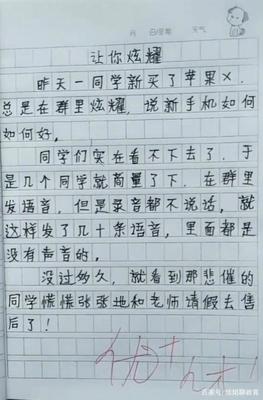 月 日 星期 天气
让你炫耀
昨天一同学新买了苹果X.
总是在群里炫耀，说新手机如何
如何好。
同学们实在看不下去了．于
是几个同学就商量了下．在群里
发语音，但是录音都不说话，就
这样发了几十条语音，里面都是
没有声音的。
没过多久，就看到那悲催的
同学慌慌张张地和老师请假去售
后了！
优+